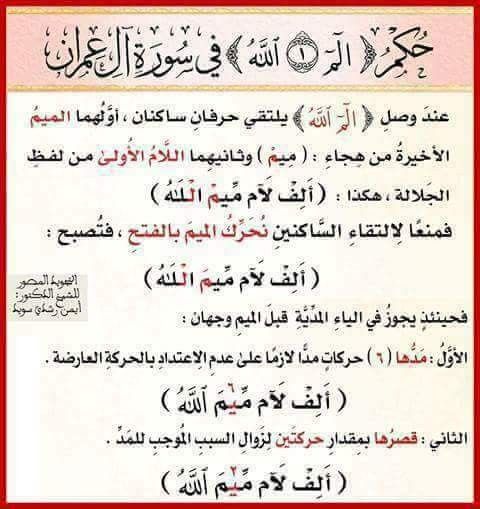 حُكْمُ ﴿ الٓمٓ ۝١ ٱللَّهُ ﴾ في سُورَةِ آلِ عِمْران
عندَ وصلِ ﴿ الٓمٓ ٱللَّهُ ﴾ يلتقي حرفانِ ساكنان ، أوَّلُهما الميمُ
الأخيرةُ من هِجاءِ : ( مِيمْ ) وثانيهِما اللَّامُ الأُولىٰ من لفظِ
الجَلالة ، هكذا : ( أَلِفْ لَآم مِّيمْ الْلَٰهُ )
فمنعًا لِالتقاءِ السَّاكنَينِ نُحَرِّكُ الميمَ بالفتحِ ، فتُصبح :
( أَلِفْ لَآم مِّيمَ الْلَٰهُ )
التجويد المصور
للشيخ الدكتور:
أيمن رشدي سويد
فحينئذٍ يجوزُ في الياءِ المدِّيَّةِ قبلَ الميمِ وجهان :
الأوَّلُ : مَدُّها ( ٦ ) حركاتٍ مدًّا لازمًا علىٰ عدمِ الاعتدادِ بالحركةِ العارضة .
( أَلِفْ لَآم مِّيمَ ٱللَّهُ ) ٦
الثاني : قصرُها بمِقدارِ حركتَينِ لِزوالِ السببِ المُوجبِ للمَدِّ .
( أَلِفْ لَآم مِّيمَ ٱللَّهُ ) ٢